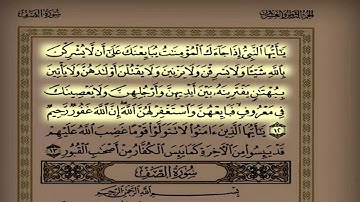 سُورَةُ الصَّفِّ الجُزْءُ الثَّامِنُ وَالعِشْرُونَ
يَٰٓأَيُّهَا ٱلنَّبِيُّ إِذَا جَآءَكَ ٱلْمُؤْمِنَٰتُ يُبَايِعْنَكَ عَلَىٰٓ أَن لَّا يُشْرِكْنَ
بِٱللَّهِ شَيْـًٔا وَلَا يَسْرِقْنَ وَلَا يَزْنِينَ وَلَا يَقْتُلْنَ أَوْلَٰدَهُنَّ وَلَا يَأْتِينَ
بِبُهْتَٰنٍ يَفْتَرِينَهُۥ بَيْنَ أَيْدِيهِنَّ وَأَرْجُلِهِنَّ وَلَا يَعْصِينَكَ
فِى مَعْرُوفٍ فَبَايِعْهُنَّ وَٱسْتَغْفِرْ لَهُنَّ ٱللَّهَ إِنَّ ٱللَّهَ غَفُورٌ رَّحِيمٌ
١٢ يَٰٓأَيُّهَا ٱلَّذِينَ ءَامَنُوا۟ لَا تَتَوَلَّوْا۟ قَوْمًا غَضِبَ ٱللَّهُ عَلَيْهِمْ
قَدْ يَئِسُوا۟ مِنَ ٱلْءَاخِرَةِ كَمَا يَئِسَ ٱلْكُفَّارُ مِنْ أَصْحَٰبِ ٱلْقُبُورِ ١٣
سُورَةُ الصَّفِّ
بِسْمِ ٱللَّهِ ٱلرَّحْمَٰنِ ٱلرَّحِيمِ